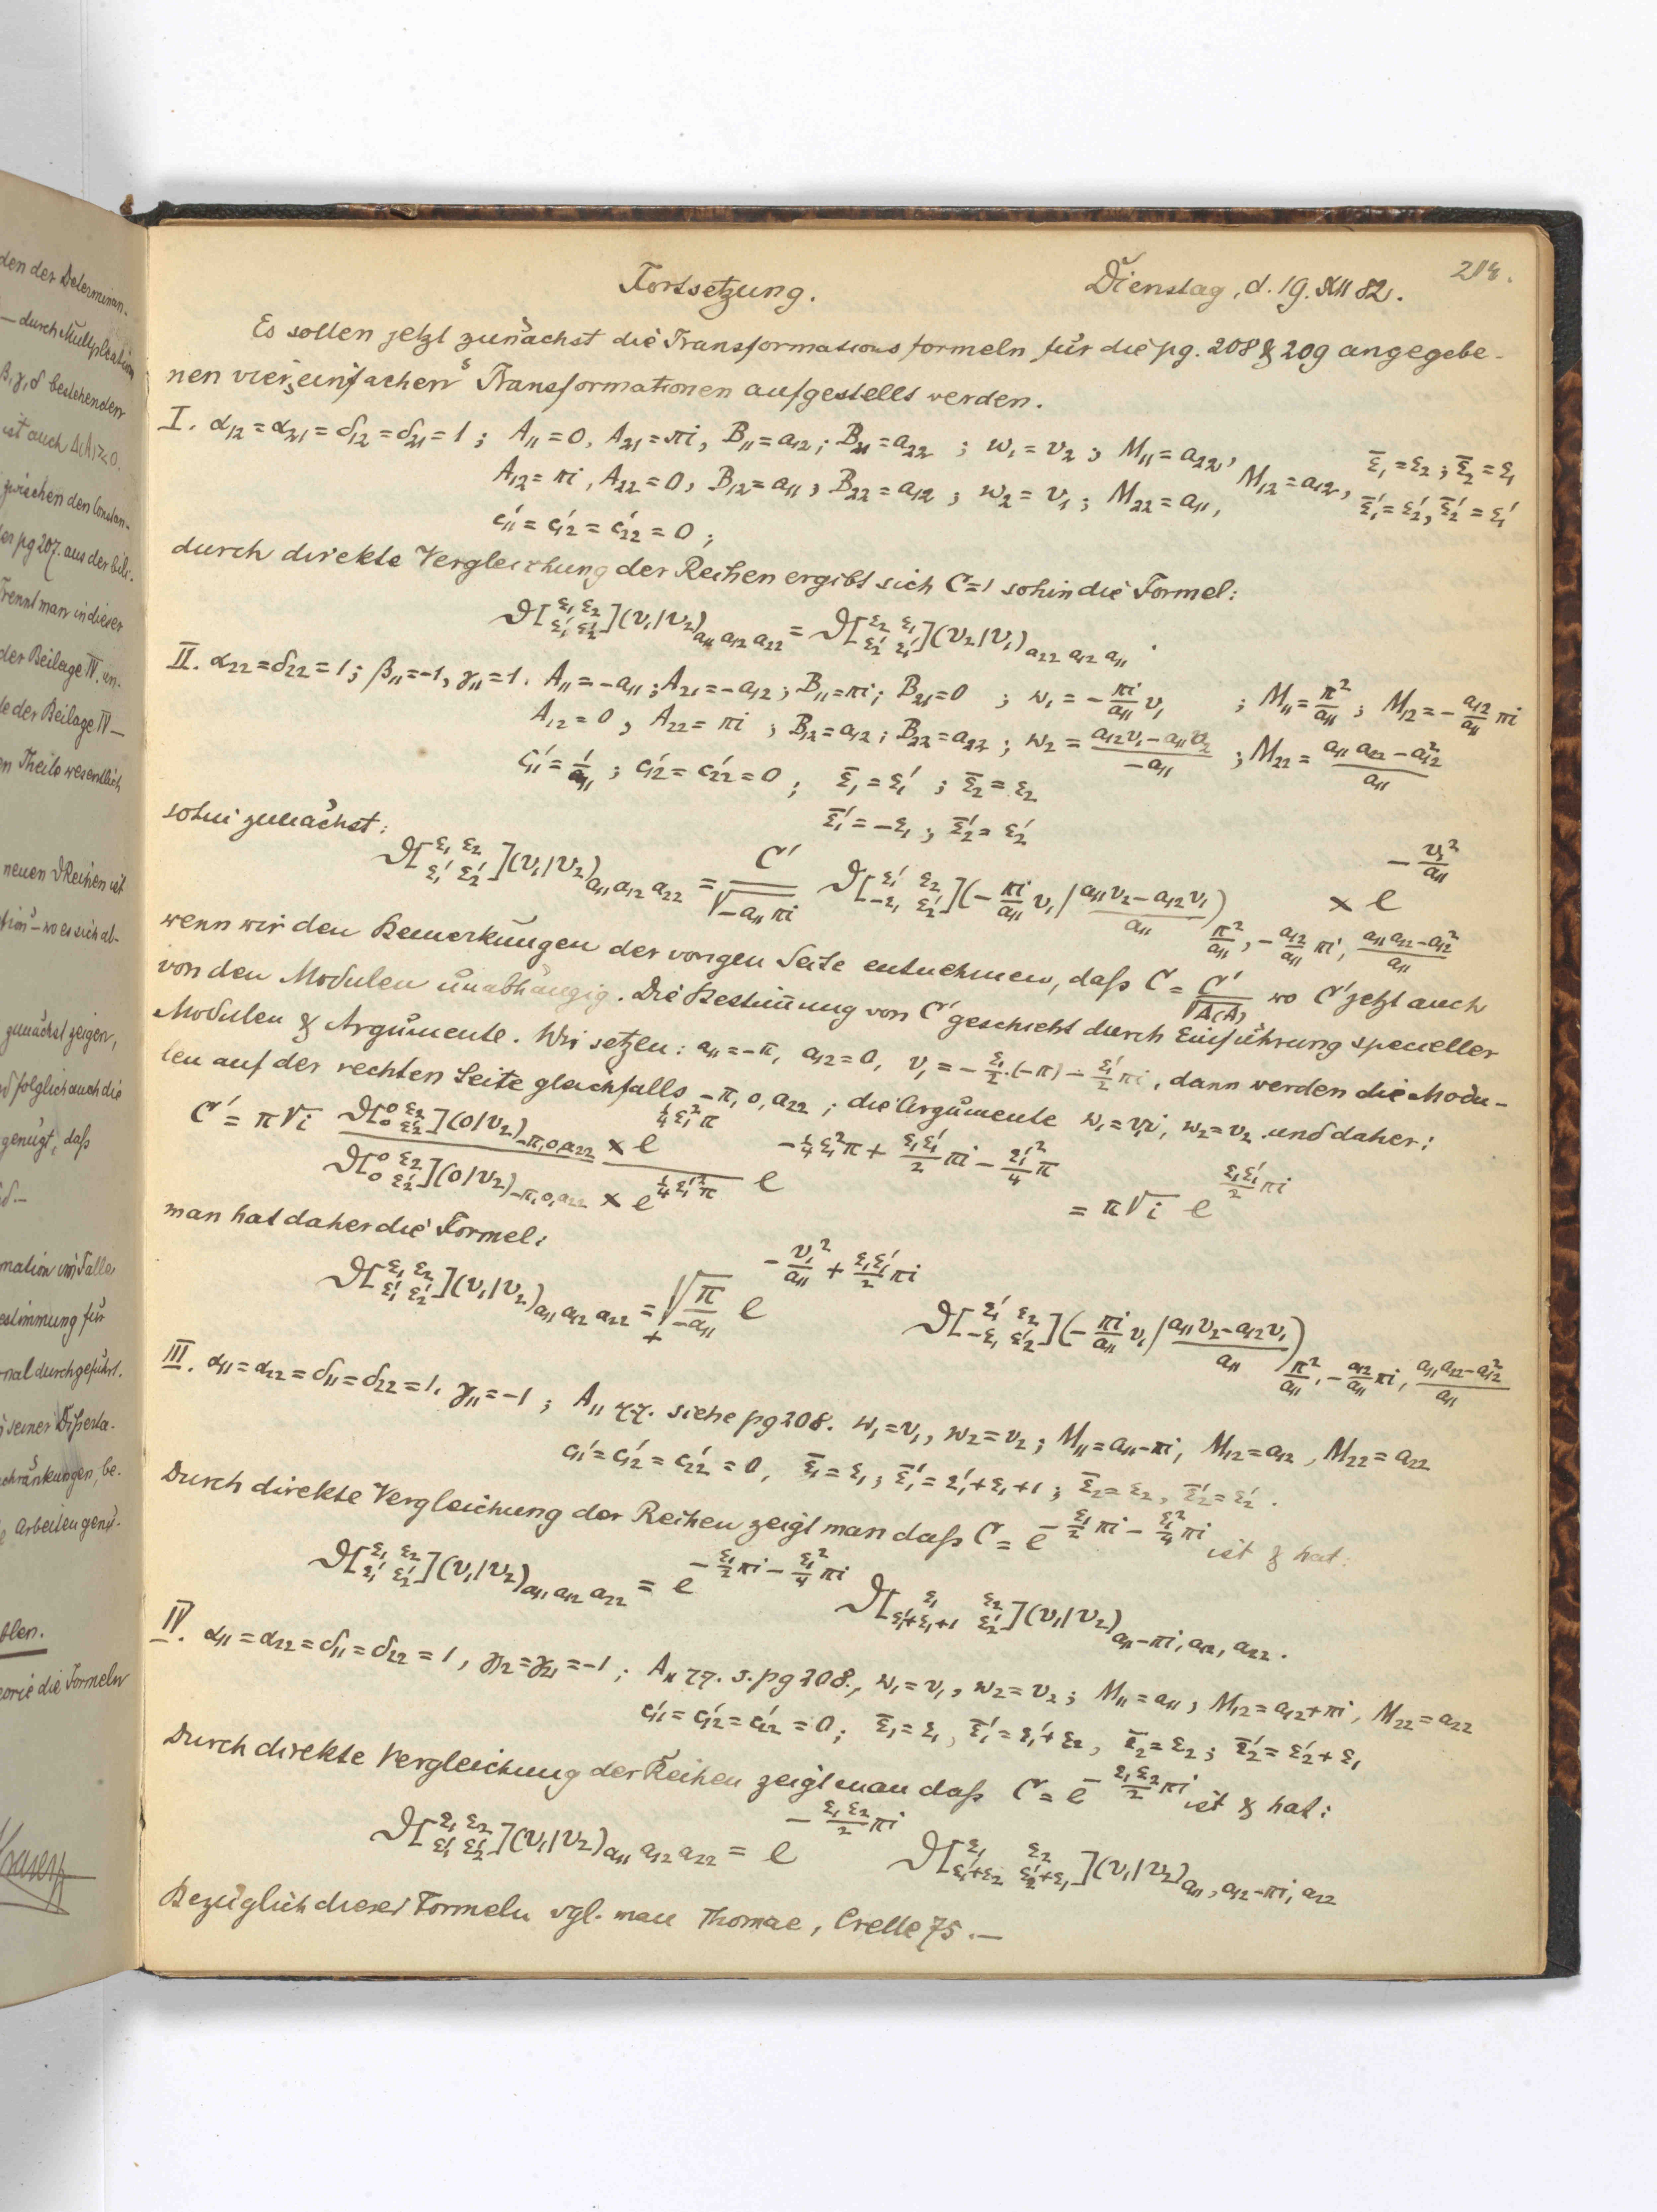 den der Determinan-
— durch Multiplication
β, γ, δ bestehenden
ist auch Δ(A)≷0.
zwischen den Constan-
der pg 207. aus der bili-
Trennt man in dieser
der Beilage IV. an-
le der Beilage IV —
en Theile wesentlich
neuen ϑReihen ist
tion — wo es sich ab-
zunächst zeigen,
nd folglich auch die
genügt, daß
mation im Falle
estimmung für
mal durchgeführt.
seiner Disserta-
schränkungen, be-
Arbeiten gen
eorie die Formeln
Fortsetzung. Dienstag, d. 19. XII 82.
Es sollen jetzt zunächst die Transformationsformeln für die pg. 208 & 209 angegebe-
nen vier „einfachen" Transformationen aufgestellt werden.
I. α₁₂ = α₂₁ = δ₁₂ = δ₂₁ = 1 ; A₁₁ = 0, A₂₁ = πi, B₁₁ = a₁₂ ; B₂₁ = a₂₂ ; w₁ = v₂ ; M₁₁ = a₂₂, M₁₂ = a₁₂, ε̄₁ = ε₂ ; ε̄₂ = ε₁
A₁₂ = πi, A₂₂ = 0, B₁₂ = a₁₁ ; B₂₂ = a₁₂ ; w₂ = v₁ ; M₂₂ = a₁₁, ε̄₁′ = ε₂′, ε̄₂′ = ε₁′
c₁₁′ = c₁₂′ = c₂₂′ = 0 ;
durch direkte Vergleichung der Reihen ergibt sich C = 1 sohin die Formel:
ϑ[ε₁ ε₂ / ε₁′ ε₂′](v₁|v₂)a₁₁ a₁₂ a₂₂ = ϑ[ε₂ ε₁ / ε₂′ ε₁′](v₂|v₁)a₂₂ a₁₂ a₁₁ .
II. α₂₂ = δ₂₂ = 1 ; β₁₁ = -1, γ₁₁ = 1. A₁₁ = -a₁₁ ; A₂₁ = -a₁₂ ; B₁₁ = πi ; B₂₁ = 0 ; w₁ = - πi/a₁₁ v₁ ; M₁₁ = π²/a₁₁ ; M₁₂ = - a₁₂/a₁₁ πi
A₁₂ = 0, A₂₂ = πi ; B₁₂ = a₁₂ ; B₂₂ = a₂₂ ; w₂ = (a₁₂v₁ - a₁₁v₂)/(-a₁₁) ; M₂₂ = (a₁₁ a₂₂ - a₁₂²)/a₁₁
c₁₁′ = 1/a₁₁ ; c₁₂′ = c₂₂′ = 0 ; ε̄₁ = ε₁′ ; ε̄₂ = ε₂
ε̄₁′ = -ε₁ ; ε̄₂′ = ε₂′
sohin zunächst:
ϑ[ε₁ ε₂ / ε₁′ ε₂′](v₁|v₂)a₁₁ a₁₂ a₂₂ = C′/√(-a₁₁ πi) ϑ[ε₁′ ε₂ / -ε₁ ε₂′](- πi/a₁₁ v₁ | (a₁₁v₂ - a₁₂v₁)/a₁₁) π²/a₁₁, - a₁₂/a₁₁ πi, (a₁₁ a₂₂ - a₁₂²)/a₁₁ × e^(- v₁²/a₁₁)
wenn wir den Bemerkungen der vorigen Seite entnehmen, daß C = C′/√Δ(A) wo C′ jetzt auch
von den Modulen unabhängig. Die Bestimmung von C′ geschieht durch Einführung specieller
Modulen & Argumente. Wir setzen: a₁₁ = -π, a₁₂ = 0, v₁ = - ε₁/2 · (-π) - ε₁′/2 πi, dann werden die Modu-
len auf der rechten Seite gleichfalls -π, 0, a₂₂ ; die Argumente w₁ = v₁i, w₂ = v₂ und daher:
C′ = π√i ϑ[0 ε₂ / 0 ε₂′](0|v₂)-π,0,a₂₂ × e^(¼ε₁²π) / ϑ[0 ε₂ / 0 ε₂′](0|v₂)-π,0,a₂₂ × e^(¼ε₁′²π) e^(-¼ε₁²π + ε₁ε₁′/2 πi - ε₁′²/4 π) = π√i e^(ε₁ε₁′/2 πi)
man hat daher die Formel:
ϑ[ε₁ ε₂ / ε₁′ ε₂′](v₁|v₂)a₁₁ a₁₂ a₂₂ = +√(π/-a₁₁) e^(- v₁²/a₁₁ + ε₁ε₁′/2 πi) ϑ[ε₁′ ε₂ / -ε₁ ε₂′](- πi/a₁₁ v₁ | (a₁₁v₂ - a₁₂v₁)/a₁₁) π²/a₁₁, - a₁₂/a₁₁ πi, (a₁₁ a₂₂ - a₁₂²)/a₁₁
III. α₁₁ = α₂₂ = δ₁₁ = δ₂₂ = 1, γ₁₁ = -1 ; A₁₁ siehe pg 208. w₁ = v₁, w₂ = v₂ ; M₁₁ = a₁₁ - πi, M₁₂ = a₁₂, M₂₂ = a₂₂
c₁₁′ = c₁₂′ = c₂₂′ = 0, ε̄₁ = ε₁ ; ε̄₁′ = ε₁′ + ε₁ + 1 ; ε̄₂ = ε₂, ε̄₂′ = ε₂′ .
Durch direkte Vergleichung der Reihen zeigt man daß C = e^(- ε₁/2 πi - ε₁²/4 πi) ist & hat:
ϑ[ε₁ ε₂ / ε₁′ ε₂′](v₁|v₂)a₁₁ a₁₂ a₂₂ = e^(- ε₁/2 πi - ε₁²/4 πi) ϑ[ε₁ ε₂ / ε₁′+ε₁+1 ε₂′](v₁|v₂)a₁₁-πi, a₁₂, a₂₂ .
IV. α₁₁ = α₂₂ = δ₁₁ = δ₂₂ = 1, γ₁₂ = γ₂₁ = -1 ; A₁₁ s. pg 208., w₁ = v₁, w₂ = v₂ ; M₁₁ = a₁₁, M₁₂ = a₁₂ + πi, M₂₂ = a₂₂
c₁₁′ = c₁₂′ = c₂₂′ = 0 ; ε̄₁ = ε₁, ε̄₁′ = ε₁′ + ε₂, ε̄₂ = ε₂ ; ε̄₂′ = ε₂′ + ε₁
Durch direkte Vergleichung der Reihen zeigt man daß C = e^(- ε₁ε₂/2 πi) ist & hat:
ϑ[ε₁ ε₂ / ε₁′ ε₂′](v₁|v₂)a₁₁ a₁₂ a₂₂ = e^(- ε₁ε₂/2 πi) ϑ[ε₁ ε₂ / ε₁′+ε₂ ε₂′+ε₁](v₁|v₂)a₁₁, a₁₂-πi, a₂₂
Bezüglich dieser Formeln vgl. man Thomae, Crelle 75. —